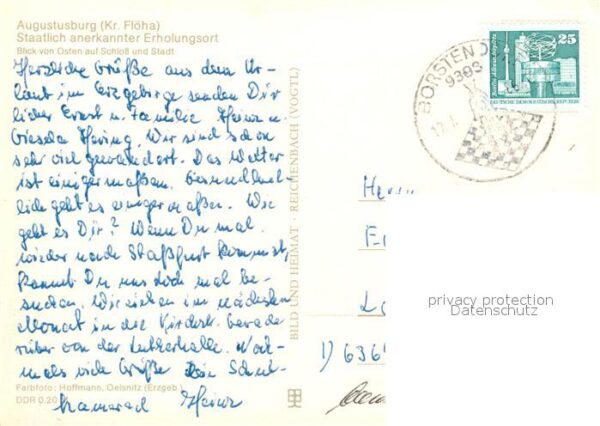 Augustusburg (Kr. Flöha)
Staatlich anerkannter Erholungsort
Blick von Osten auf Schloß und Stadt
Herzliche Grüße aus dem Ur-
laub im Erzgebirge senden Dir
lieber Ernst u. Familie Heinz u.
Gisela Hering. Wir sind schon
sehr viel gewandert. Das Wetter
ist einigermaßen. Gesundheit-
lich geht es einigermaßen. Wie
geht es Dir? Wenn Du mal
wieder nach Staßfurt kommst,
kannst Du uns doch mal be-
suchen. Wir ziehen im nächsten
Monat in die Gerade
rüber von der Lutherhalle. Noch-
mals viele Grüße Dein Schul-
kamerad Heinz
Farbfoto: Hoffmann, Oelsnitz (Erzgeb.)
DDR 0,20
BILD UND HEIMAT · REICHENBACH (VOGTL)
BORSTENDO
9383
25
DEUTSCHE DEMOKRATISCHE REPUBLIK
Herrn
1) 6364
privacy protection
Datenschutz